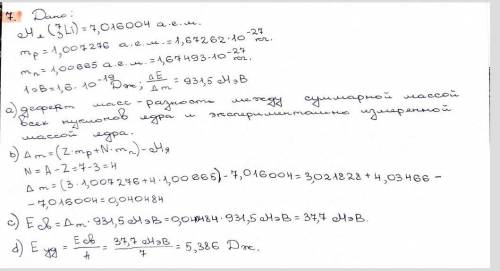 7. Дано:
Mя (⁷₃Li) = 7,016004 а.е.м.
mp = 1,007276 а.е.м. = 1,67262·10⁻²⁷ кг.
mn = 1,00865 а.е.м. = 1,67493·10⁻²⁷ кг.
1эВ = 1,6·10⁻¹⁹ Дж; ΔE/Δm = 931,5 МэВ
a) дефект масс - разность между суммарной массой
всех нуклонов ядра и экспериментально измеренной
массой ядра.
b) Δm = (Z·mp + N·mn) - Mя
N = A - Z = 7 - 3 = 4
Δm = (3·1,007276 + 4·1,00865) - 7,016004 = 3,021828 + 4,03466 -
- 7,016004 = 0,040484
c) Eсв = Δm·931,5 МэВ = 0,040484·931,5 МэВ = 37,7 МэВ.
d) Eуд = Eсв/A = 37,7 МэВ/7 = 5,386 Дж.